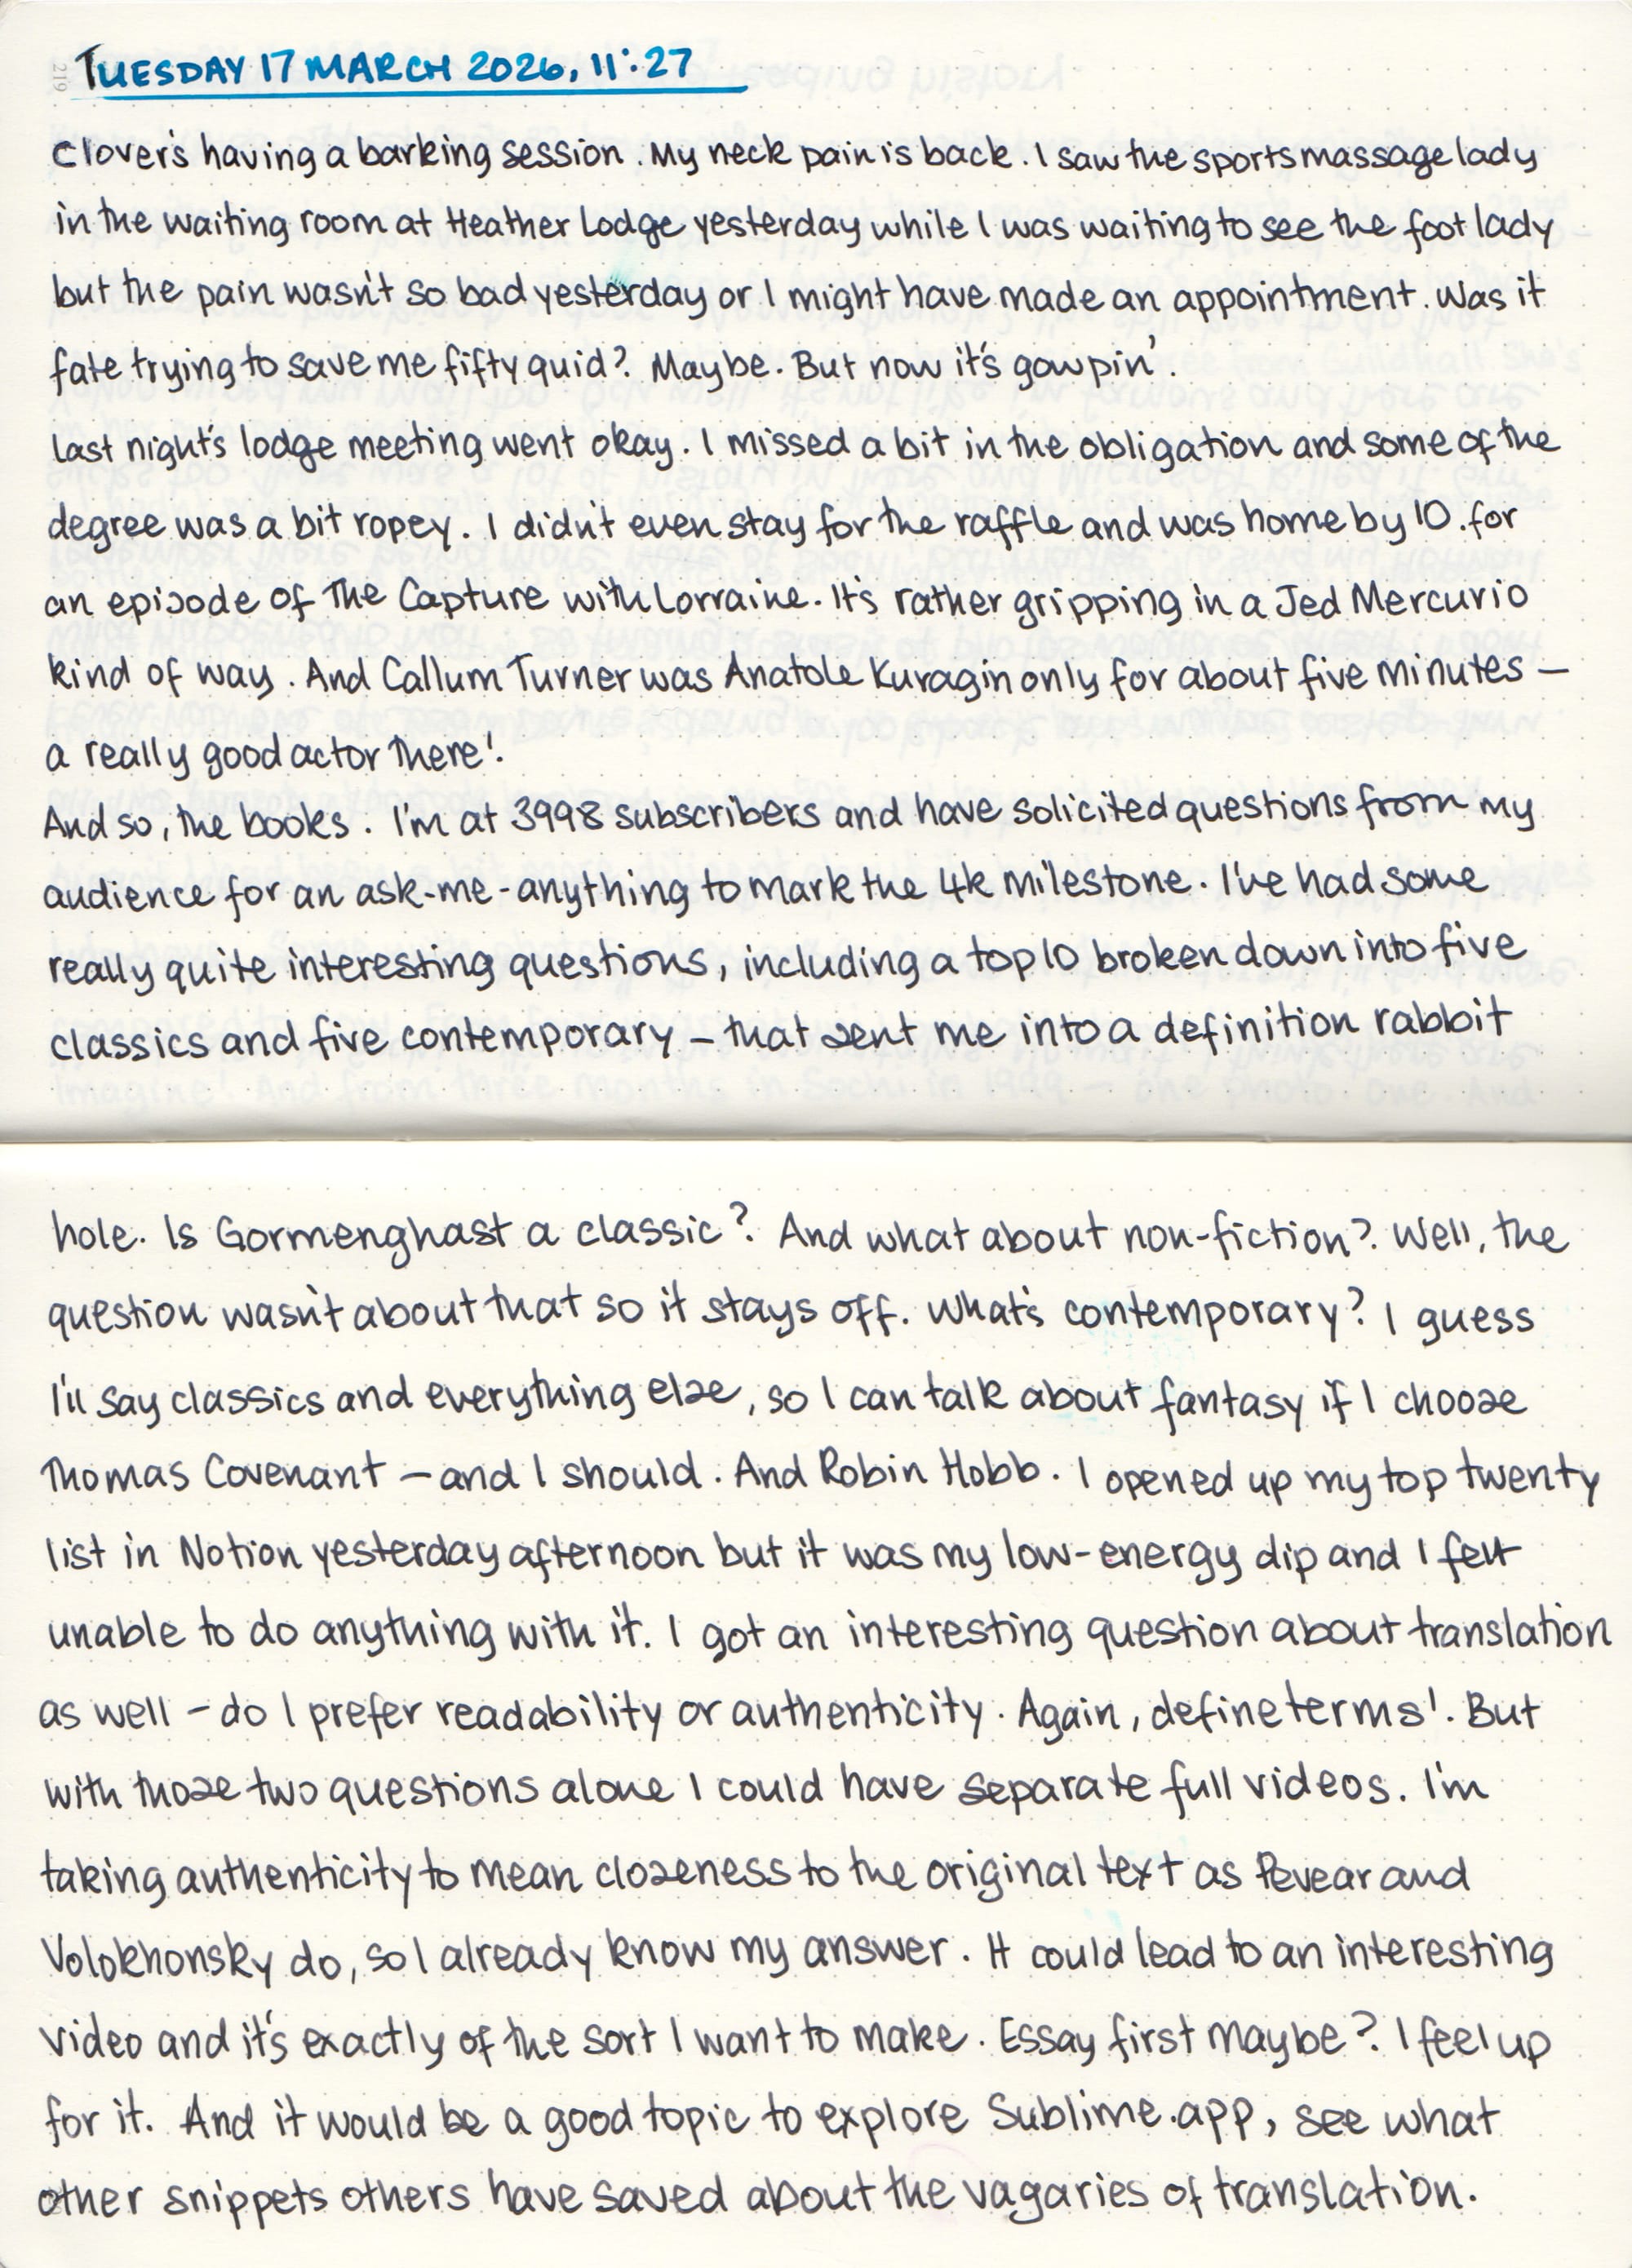 TUESDAY 17 MARCH 2026, 11:27
Clover's having a barking session. My neck pain is back. I saw the sports massage lady
in the waiting room at Heather Lodge yesterday while I was waiting to see the foot lady
but the pain wasn't so bad yesterday or I might have made an appointment. Was it
fate trying to save me fifty quid? Maybe. But now it's gowpin'.
Last night's lodge meeting went okay. I missed a bit in the obligation and some of the
degree was a bit ropey. I didn't even stay for the raffle and was home by 10. for
an episode of The Capture with Lorraine. It's rather gripping in a Jed Mercurio
kind of way. And Callum Turner was Anatole Kuragin only for about five minutes –
a really good actor there!
And so, the books. I'm at 3998 subscribers and have solicited questions from my
audience for an ask-me-anything to mark the 4k milestone. I've had some
really quite interesting questions, including a top 10 broken down into five
classics and five contemporary – that sent me into a definition rabbit
hole. Is Gormenghast a classic? And what about non-fiction? Well, the
question wasn't about that so it stays off. What's contemporary? I guess
I'll say classics and everything else, so I can talk about fantasy if I choose
Thomas Covenant – and I should. And Robin Hobb. I opened up my top twenty
list in Notion yesterday afternoon but it was my low-energy dip and I felt
unable to do anything with it. I got an interesting question about translation
as well – do I prefer readability or authenticity. Again, define terms! But
with those two questions alone I could have separate full videos. I'm
taking authenticity to mean closeness to the original text as Pevear and
Volokhonsky do, so I already know my answer. It could lead to an interesting
video and it's exactly of the sort I want to make. Essay first maybe? I feel up
for it. And it would be a good topic to explore Sublime.app, see what
other snippets others have saved about the vagaries of translation.